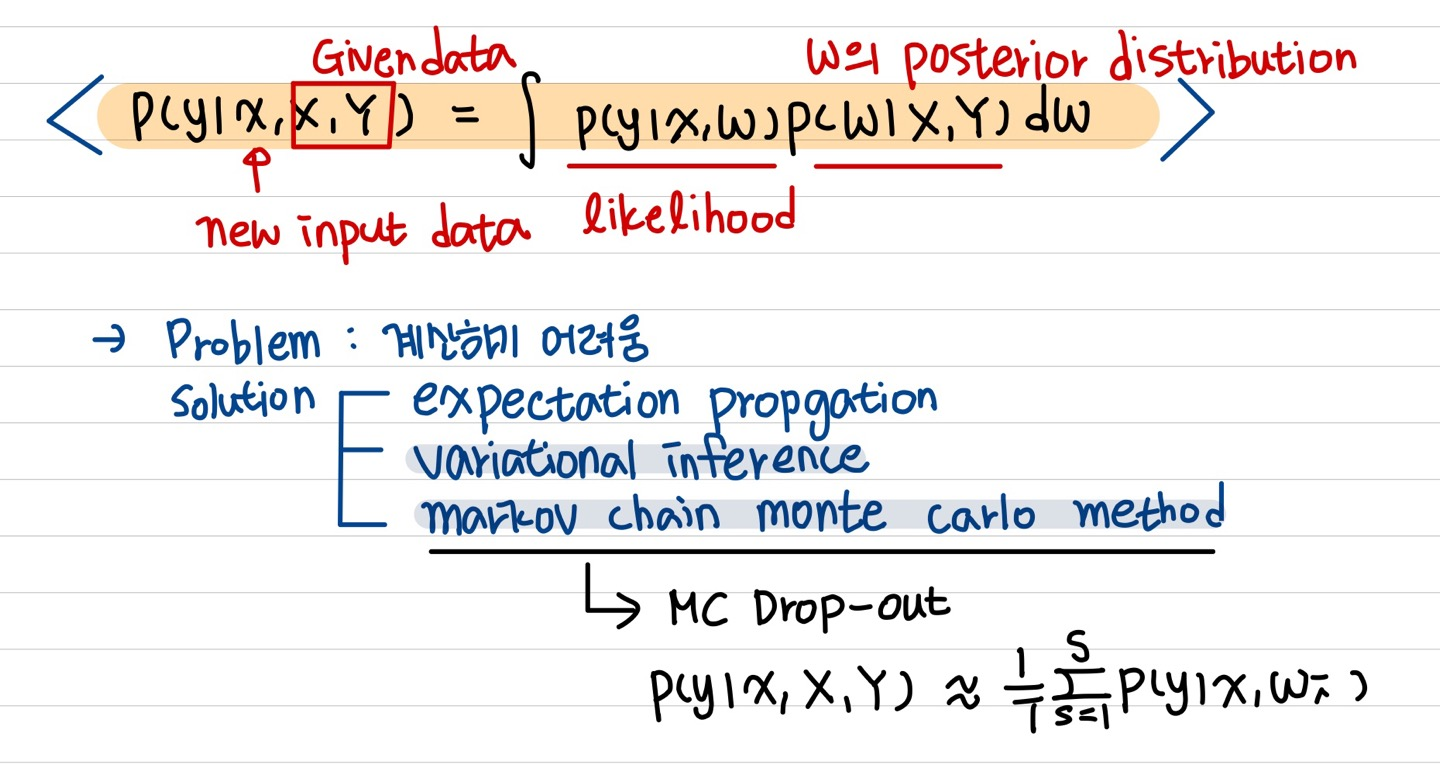 Given data
w의 posterior distribution
< p(y|x, X, Y) = ∫ p(y|x,w) p(w|X,Y) dw >
new input data
likelihood
→ Problem : 계산하기 어려움
Solution
expectation propgation
variational inference
markov chain monte carlo method
↳ MC Drop-out
p(y|x, X, Y) ≈ 1/1 Σ_{s=1}^{S} p(y|x, wi)